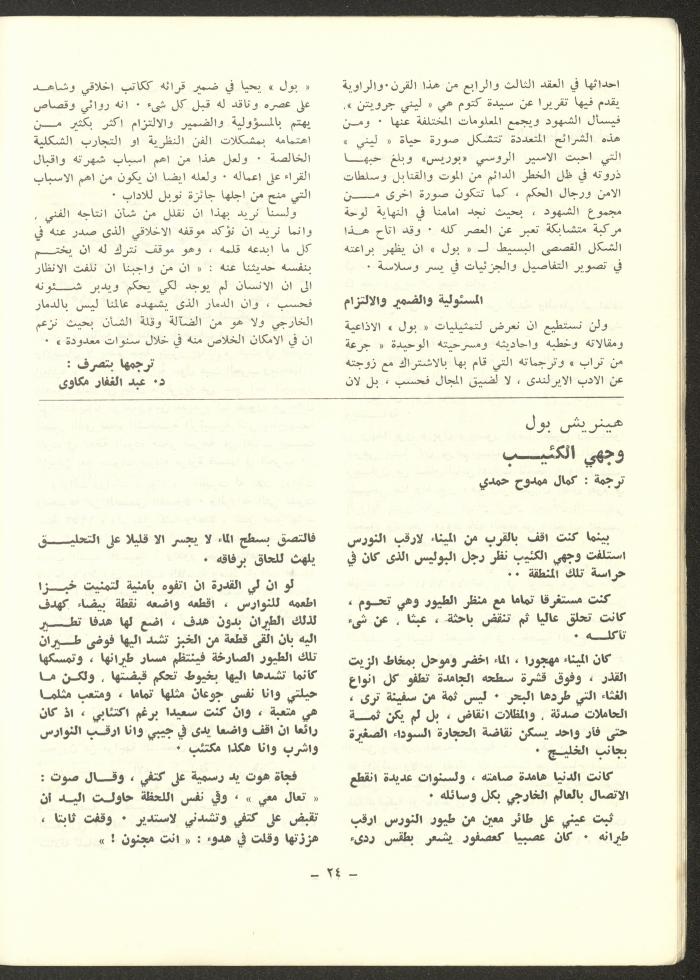 احداثها في العقد الثالث والرابع من هذا القرن٠والراوية
يقدم فيها تقريرا عن سيدة كتوم هي « ليني جرويتن »،
فيسأل الشهود ويجمع المعلومات المختلفة عنها ٠ ومـن
هذه الشرائح المتعددة تتشكل صورة حياة « ليني »
التي احبت الاسير الروسي «بوريس» وبلغ حبهـــا
ذروته في ظل الخطر الدائم من الموت والقنابل وسلطات
الامن ورجال الحكم ، كما تتكون صورة اخرى مــــن
مجموع الشهود ، بحيث نجد امامنا في النهاية لوحة
مركبة متشابكة تعبر عن العصر كله ٠ وقد اتاح هــذا
الشكل القصصى البسيط لـ « بول » ان يظهر براعته
في تصوير التفاصيل والجزئيات في يسر وسلاسة ٠
المسئولية والضمير والالتزام
ولن نستطيع ان نعرض لتمثيليات « بول » الاذاعية
ومقالاته وخطبه واحاديثه ومسرحيته الوحيدة « جرعة
من تراب » وترجماته التي قام بها بالاشتراك مع زوجته
عن الادب الايرلندى ، لا لضيق المجال فحسب ، بل لان
« بول » يحيا في ضمير قرائه ككاتب اخلاقي وشاهـد
على عصره وناقد له قبل كل شىء ٠ انه روائي وقصاص
يهتم بالمسؤولية والضمير والالتزام اكثر بكثير مـــن
اهتمامه بمشكلات الفن النظرية او التجارب الشكلية
الخالصة ٠ ولعل هذا من اهم اسباب شهرته واقبال
القراء على اعماله ٠ ولعله ايضا ان يكون من اهم الاسباب
التي منح من اجلها جائزة نوبل للاداب ٠
ولسنا نريد بهذا ان نقلل من شأن انتاجه الفني ،
وانما نريد ان نؤكد موقفه الاخلاقي الذى صدر عنه في
كل ما ابدعه قلمه ، وهو موقف نترك له ان يختــم
بنفسه حديثنا عنه : « ان من واجبنا ان نلفت الانظار
الى ان الانسان لم يوجد لكي يحكم ويدبر شـــئونه
فحسب ، وان الدمار الذى يشهده عالمنا ليس بالدمار
الخارجي ولا هو من الضآلة وقلة الشأن بحيث نزعم
ان في الامكان الخلاص منه في خلال سنوات معدودة » ٠
ترجمها بتصرف :
د٠ عبد الغفار مكاوى
هينريش بول
وجهي الكئيـــب
ترجمة : كمال ممدوح حمدي
بينما كنت اقف بالقرب من الميناء لارقب النورس
استلفت وجهي الكئيب نظر رجل البوليس الذى كان في
حراسة تلك المنطقة ٠٠
كنت مستغرقا تماما مع منظر الطيور وهي تحـوم ،
كانت تحلق عاليا ثم تنقض باحثة ، عبثا ، عن شىء
تأكلــه ٠
كان الميناء مهجورا ، الماء اخضر وموحل بمخاط الزيت
القذر ، وفوق قشرة سطحه الجامدة تطفو كل انواع
الغثاء التي طردها البحر ٠ ليس ثمة من سفينة ترى ،
الحاملات صدئة ، والمظلات انقاض ، بل لم يكن ثمـــة
حتى فار واحد يسكن نقاضة الحجارة السوداء الصغيرة
بجانب الخليــج ٠
كانت الدنيا هامدة صامته ، ولسنوات عديدة انقطع
الاتصال بالعالم الخارجي بكل وسائله ٠
ثبت عيني على طائر معين من طيور النورس ارقب
طيرانه ٠ كان عصبيا كعصفور يشعر بطقس ردىء
فالتصق بسطح الماء لا يجسر الا قليلا على التحليــــق
يلهث للحاق برفاقه ٠
لو ان لي القدرة ان اتفوه بامنية لتمنيت خبـــزا
اطعمه للنوارس ، اقطعه واضعه نقطة بيضاء كهدف
لذلك الطيران بدون هدف ، اضع لها هدفا تطـــير
اليه بان القى قطعة من الخبز تشد اليها فوضى طــيران
تلك الطيور الصارخة فينتظم مسار طيرانها ، وتمسكها
كانما تشدها اليها بخيوط تحكم قبضتها ، ولكـن مـا
حيلتي وانا نفسى جوعان مثلها تماما ، ومتعب مثلمـا
هي متعبة ، وان كنت سعيدا برغم اكتئابي ، اذ كان
رائعا ان اقف واضعا يدى في جيبي وانا ارقـب النوارس
واشرب وانا هكذا مكتئب ٠
فجأة هوت يد رسمية على كتفي ، وقـــال صوت :
« تعال معي » ، وفي نفس اللحظة حاولـت اليـد أن
تقبض على كتفي وتشدني لاستدير ٠ وقفت ثابتا ،
هززتها وقلت في هدوء : « انت مجنون ! »
– ٢٤ –